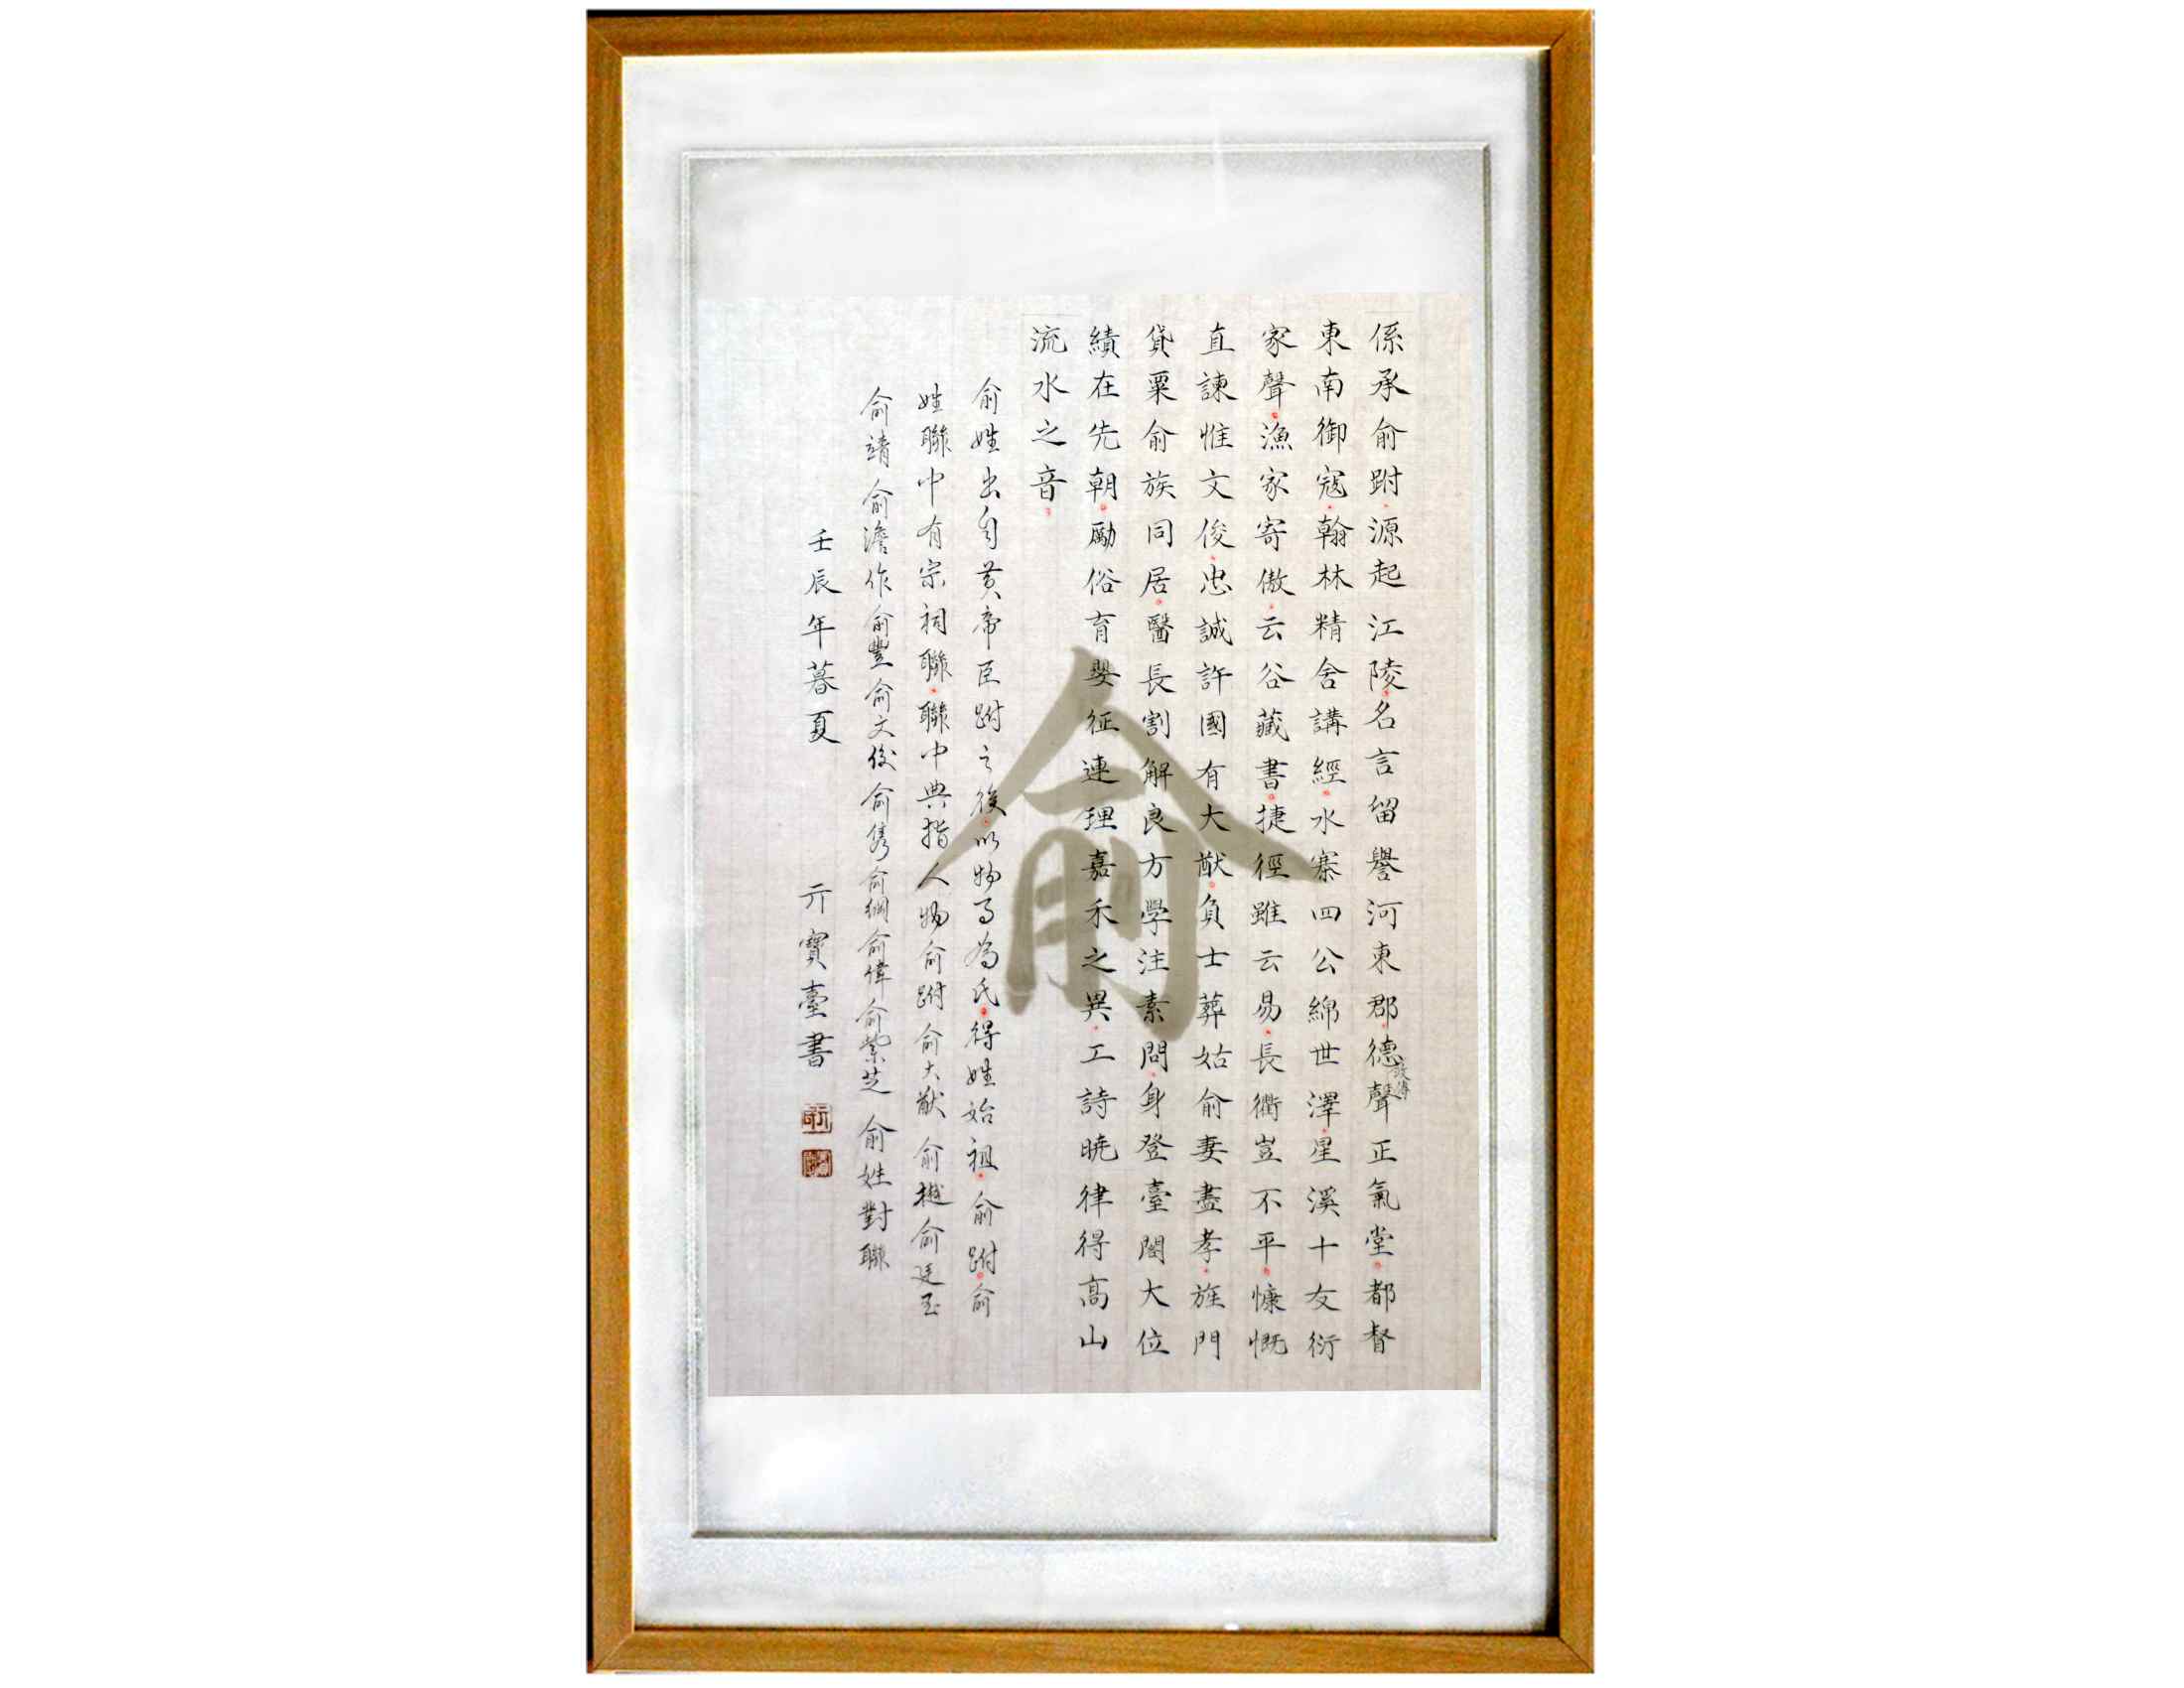 係承俞跗源起江陵名言留譽河東郡德聲正氣堂都督
故傳
東南御寇翰林精舍講經水寨四公綿世澤星溪十友衍
家聲漁家寄傲云谷藏書捷徑雖云易長衢豈不平慷慨
直諫惟文俊忠誠許國有大猷負士葬姑俞妻盡孝旌門
貸粟俞族同居醫長割解良方學注素問身登臺閣大位
績在先朝勵俗育嬰征連理嘉禾之異工詩曉律得高山
流水之音
俞姓出自黃帝臣跗之後以物事為氏得姓始祖俞跗俞
姓聯中有宗祠聯聯中典指人物俞跗俞大猷俞樾俞廷玉
俞靖俞澹作俞豐俞文俊俞雋俞綱俞偉俞紫芝俞姓對聯
壬辰年暮夏
亓寶臺書
俞